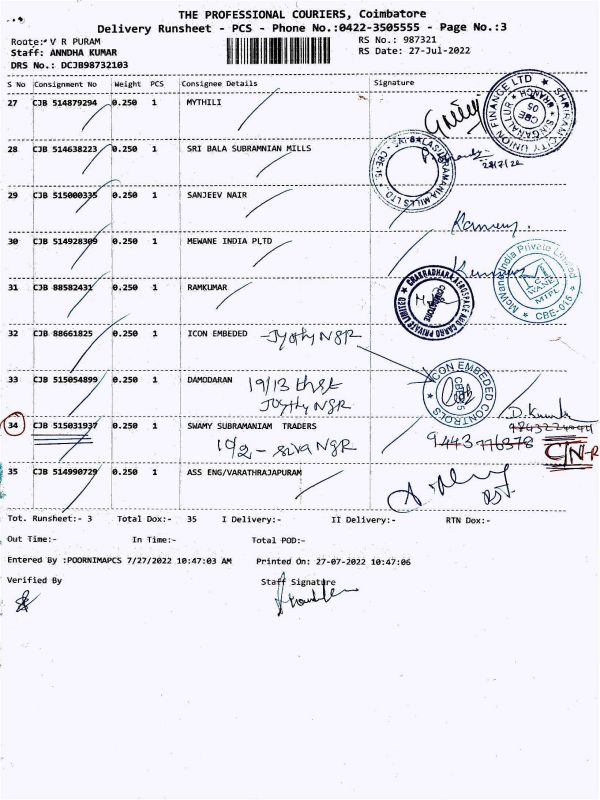 THE PROFESSIONAL COURIERS, Coimbatore
Delivery Runsheet - PCS - Phone No.:0422-3505555 - Page No.:3
Route: V R PURAM
RS No.: 987321
Staff: ANNDHA KUMAR
RS Date: 27-Jul-2022
DRS No.: DCJB98732103
S No Consignment No Weight PCS Consignee Details Signature
27 CJB 514879294 0.250 1 MYTHILI
SHRIRAM CITY UNION FINANCE LTD
CBE
05
28 CJB 514638223 0.250 1 SRI BALA SUBRAMNIAN MILLS
29 CJB 515000335 0.250 1 SANJEEV NAIR
30 CJB 514928309 0.250 1 MEWANE INDIA PLTD
CBE-015
31 CJB 88582431 0.250 1 RAMKUMAR
CHAKRADHARA AEROSPACE AND CARGO PRIVATE LIMITED
COIMBATORE
32 CJB 88661825 0.250 1 ICON EMBEDED
Jyothy NGR
ICON EMBEDED CONTROLS
33 CJB 515054899 0.250 1 DAMODARAN
19/13 th st
Jothy NGR
34 CJB 515031937 0.250 1 SWAMY SUBRAMANIAM TRADERS
10/2 - Siva NGR
9443776378
C/N-R
35 CJB 514990729 0.250 1 ASS ENG/VARATHRAJAPURAM
Tot. Runsheet:- 3 Total Dox:- 35 I Delivery:- II Delivery:- RTN Dox:-
Out Time:- In Time:- Total POD:-
Entered By :POORNIMAPCS 7/27/2022 10:47:03 AM Printed On: 27-07-2022 10:47:06
Verified By Staff Signature